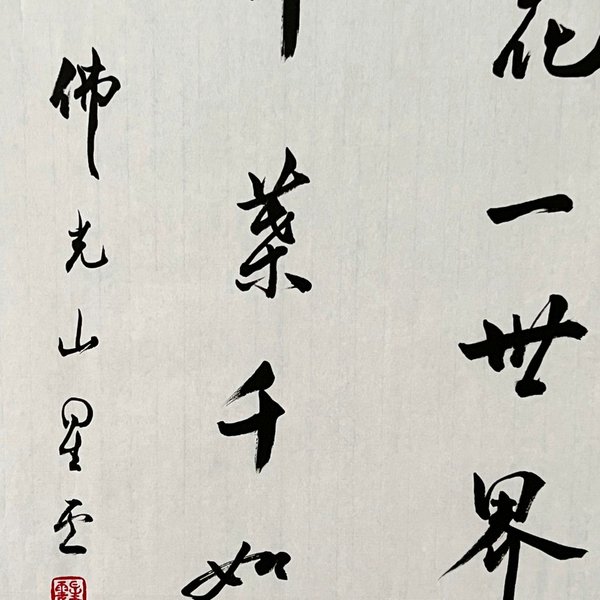 花一世界
葉千如
佛光山星雲